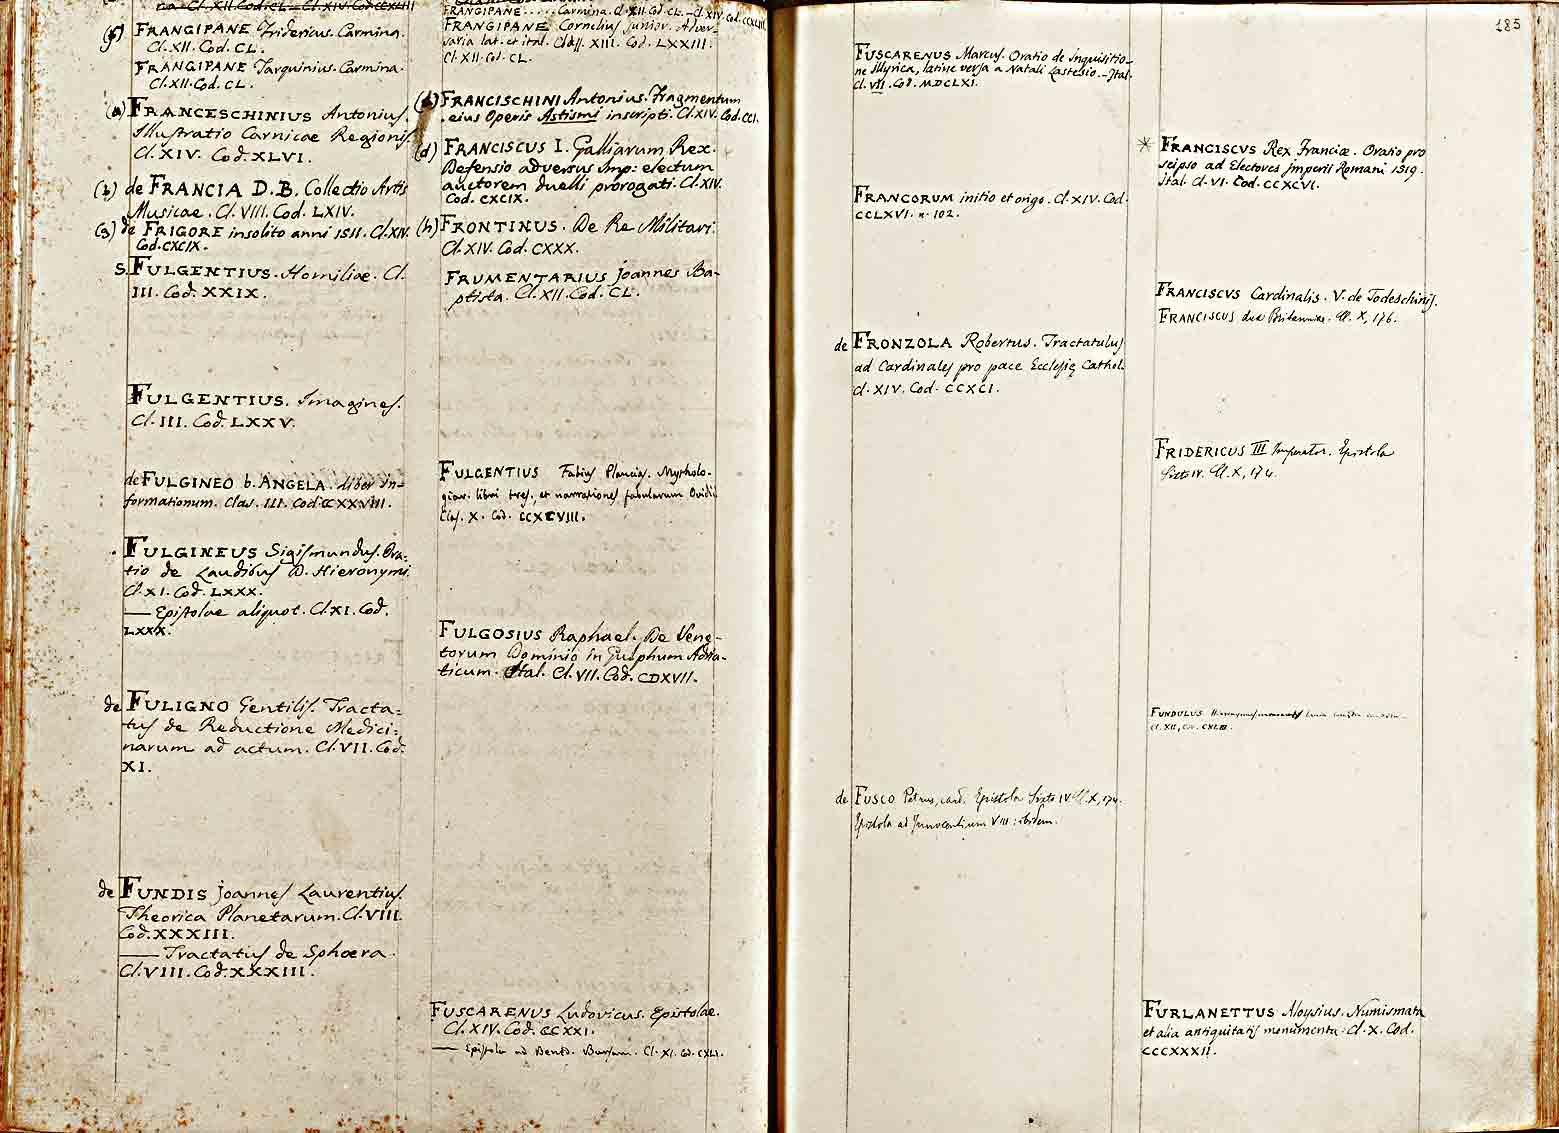 na Cl. XII. Cod. CL — Cl. XIV. Cod. CCXLIII
(f) FRANGIPANE Fridericus. Carmina.
Cl. XII. Cod. CL.
FRANGIPANE Tarquinius. Carmina.
Cl. XII. Cod. CL.
(a) FRANCESCHINIUS Antonius.
Illustratio Carnicae Regionis.
Cl. XIV. Cod. XLVI.
(b) de FRANCIA D. B. Collectio Artis
Musicae. Cl. VIII. Cod. LXIV.
(g) de FRIGORE insolito anni 1511. Cl. XIV.
Cod. CXCIX.
S. FULGENTIUS. Homiliae. Cl.
III. Cod. XXIX.
FULGENTIUS. Imagines.
Cl. III. Cod. LXXV.
de FULGINEO b. ANGELA. Liber in-
formationum. Clas. III. Cod. CCXXVIII.
FULGINEUS Sigismundus. Ora-
tio de Laudibus D. Hieronymi.
Cl. XI. Cod. LXXX.
— Epistolae aliquot. Cl. XI. Cod.
LXXX.
de FULIGNO Gentilis. Tracta-
tus de Reductione Medici-
narum ad actum. Cl. VII. Cod.
XI.
de FUNDIS Joannes Laurentius.
Theorica Planetarum. Cl. VIII.
Cod. XXXIII.
— Tractatus de Sphoera.
Cl. VIII. Cod. XXXIII.
FRANGIPANE . . . . . Carmina. Cl. XII. Cod. CL. — Cl. XIV. Cod. CCXLIII
FRANGIPANE Cornelius junior. Adver-
saria lat. et ital. Class. XIII. Cod. LXXIII.
Cl. XII. Cod. CL.
FRANCISCHINI Antonius. Fragmentum
eius Operis Astismi inscripti. Cl. XIV. Cod. CCI.
(d) FRANCISCUS I. Galliarum Rex.
Defensio adversus Imp: electum
auctorem duelli prorogati. Cl. XIV.
Cod. CXCIX.
(h) FRONTINUS. De Re Militari.
Cl. XIV. Cod. CXXX.
FRUMENTARIUS Joannes Ba-
ptista. Cl. XII. Cod. CL.
FULGENTIUS Fabius Plancias. Mytholo-
giar. libri tres, et narrationes fabularum Ovidii
Clas. X. Cod. CCXCVIII.
FULGOSIUS Raphael. De Vene-
torum Dominio in Gulphum Adria-
ticum. Ital. Cl. VII. Cod. CDXVII.
FUSCARENUS Ludovicus. Epistolae.
Cl. XIV. Cod. CCXXI.
— Epistola ad Bened. Bursam. Cl. XI. Cod. CXLI.
185
FUSCARENUS Marcus. Oratio de Inquisitio-
ne Illyrica, latine versa a Natali Lastesio. — Ital.
Cl. VII. Cod. MDCLXI.
FRANCORUM initio et origo. Cl. XIV. Cod.
CCLXVI. n. 102.
de FRONZOLA Robertus. Tractatulus
ad Cardinales pro pace Ecclesię Cathol.
Cl. XIV. Cod. CCXCI.
de FUSCO Petrus, card. Epistola Sixto IV. Cl. X, 174.
Epistola ad Innocentium VIII: ibidem.
* FRANCISCVS Rex Franciæ. Oratio pro
seipso ad Electores Imperii Romani 1519.
Ital. Cl. VI. Cod. CCXCVI.
FRANCISCVS Cardinalis. V. de Todeschinis.
FRANCISCUS dux Britanniae. Cl. X, 176.
FRIDERICUS III Imperator. Epistola
Sixto IV. Cl. X, 174.
FUNDULUS Hieronymus
Cl. XII, Cod. CXLIII.
FURLANETTUS Aloysius. Numismata
et alia antiquitatis monumenta. Cl. X. Cod.
CCCXXXII.